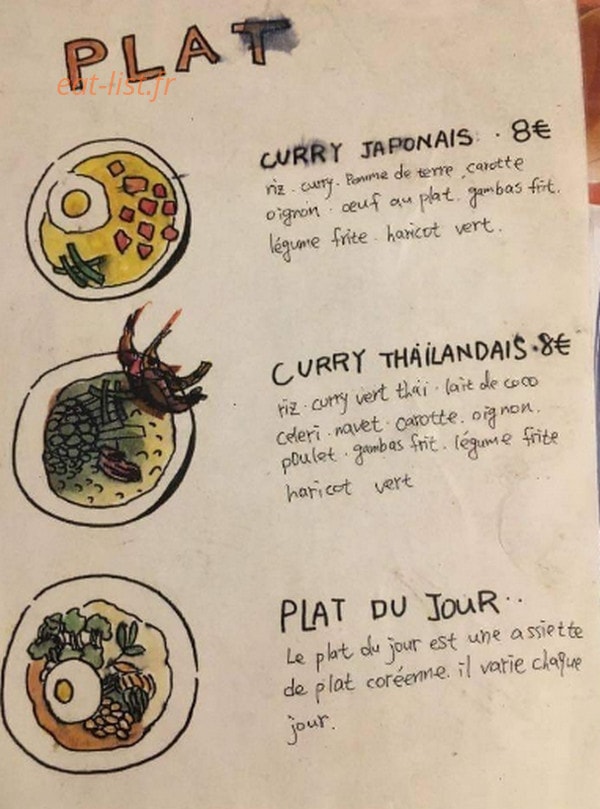 PLAT
eat-list.fr
CURRY JAPONAIS . 8€
riz . curry . Pomme de terre . carotte
oignon . oeuf au plat . gambas frit.
légume frite . haricot vert.
CURRY THAÏLANDAIS . 8€
riz . curry vert thaï . lait de coco
celeri . navet . carotte . oignon.
poulet . gambas frit . légume frite
haricot vert
PLAT DU JOUR ..
Le plat du jour est une assiette
de plat coréenne. il varie chaque
jour.